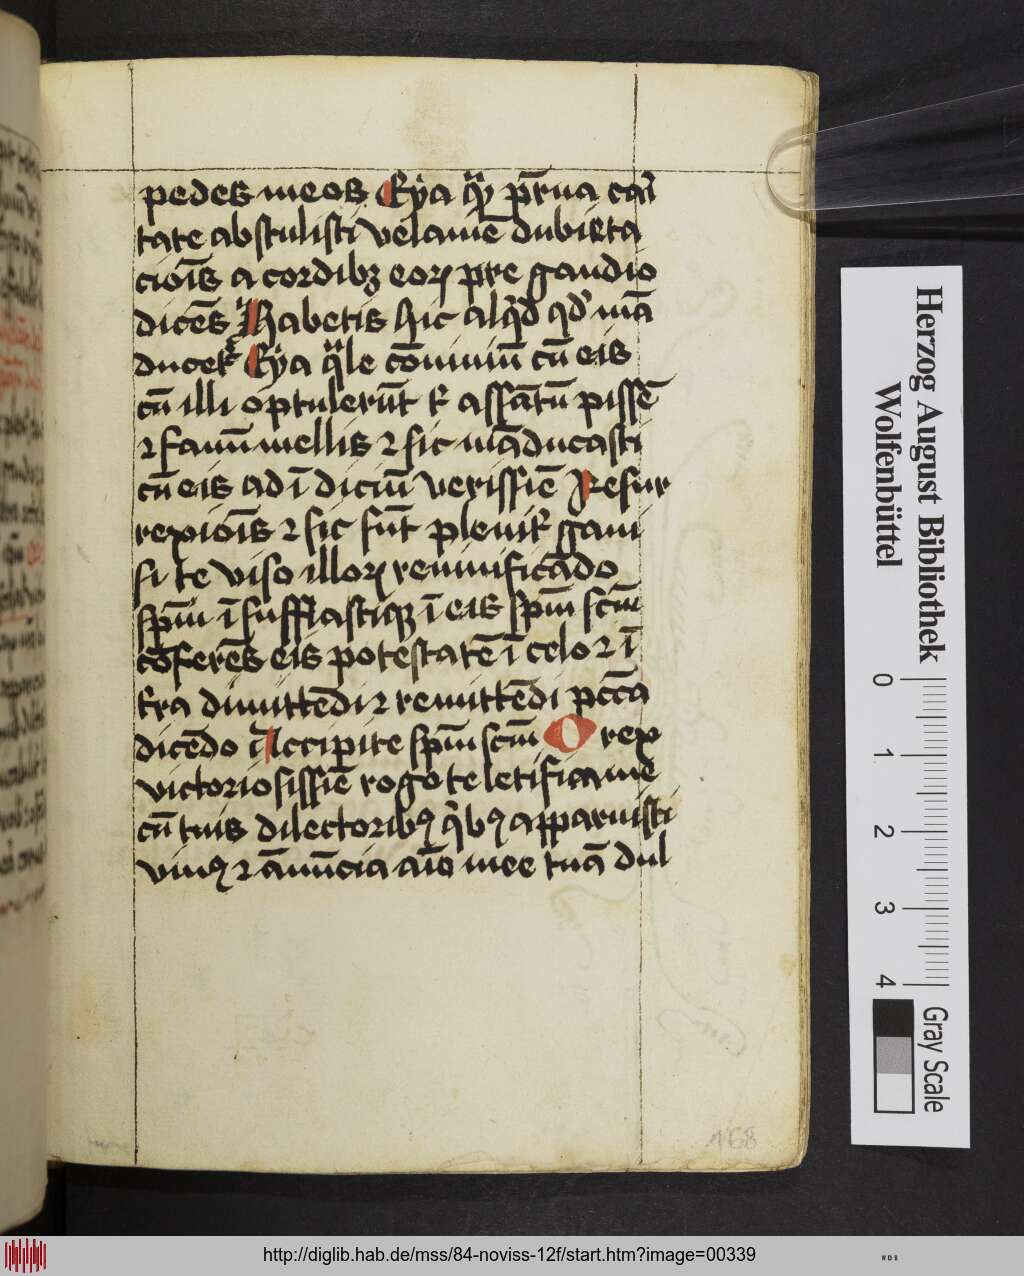 pedes meos Eya qm̄ pr̄na cari
tate abstulisti velamē dubieta
ciōis a cordibꝫ eoꝝ pre gaudio
dicēs Habetis hic alqͥd qd̓ mā
ducet᷑ Eya qͣle cōuiuiū cū eis
cū illi optulerūt t᷑ assatū pissē
⁊ fauū mellis ⁊ sic māducasti
cū eis ad īdiciū verissīe Resur
rexiōis ⁊ sic sūt pleniꝰ gaui
si te viso illoꝝ reuiuificādo
spm̄ īsufflastiqꝫ ī eis spm̄ scm̄
cōferēs eis potestatē ī celo ⁊ ī
t᷑ra dimittēdi ⁊ remittēdi pcc̄a
dicēdo Accipite spm̄ scm̄ O rex
victoriosissīe rogo te letifica me
cū tuis dilectoribꝰ qͥbꝰ apparuisti
viuꝰ ⁊ ānūcia aīe mee tuā dul
168
Herzog August Bibliothek
Wolfenbüttel
0 1 2 3 4
Gray Scale
http://diglib.hab.de/mss/84-noviss-12f/start.htm?image=00339
WDB